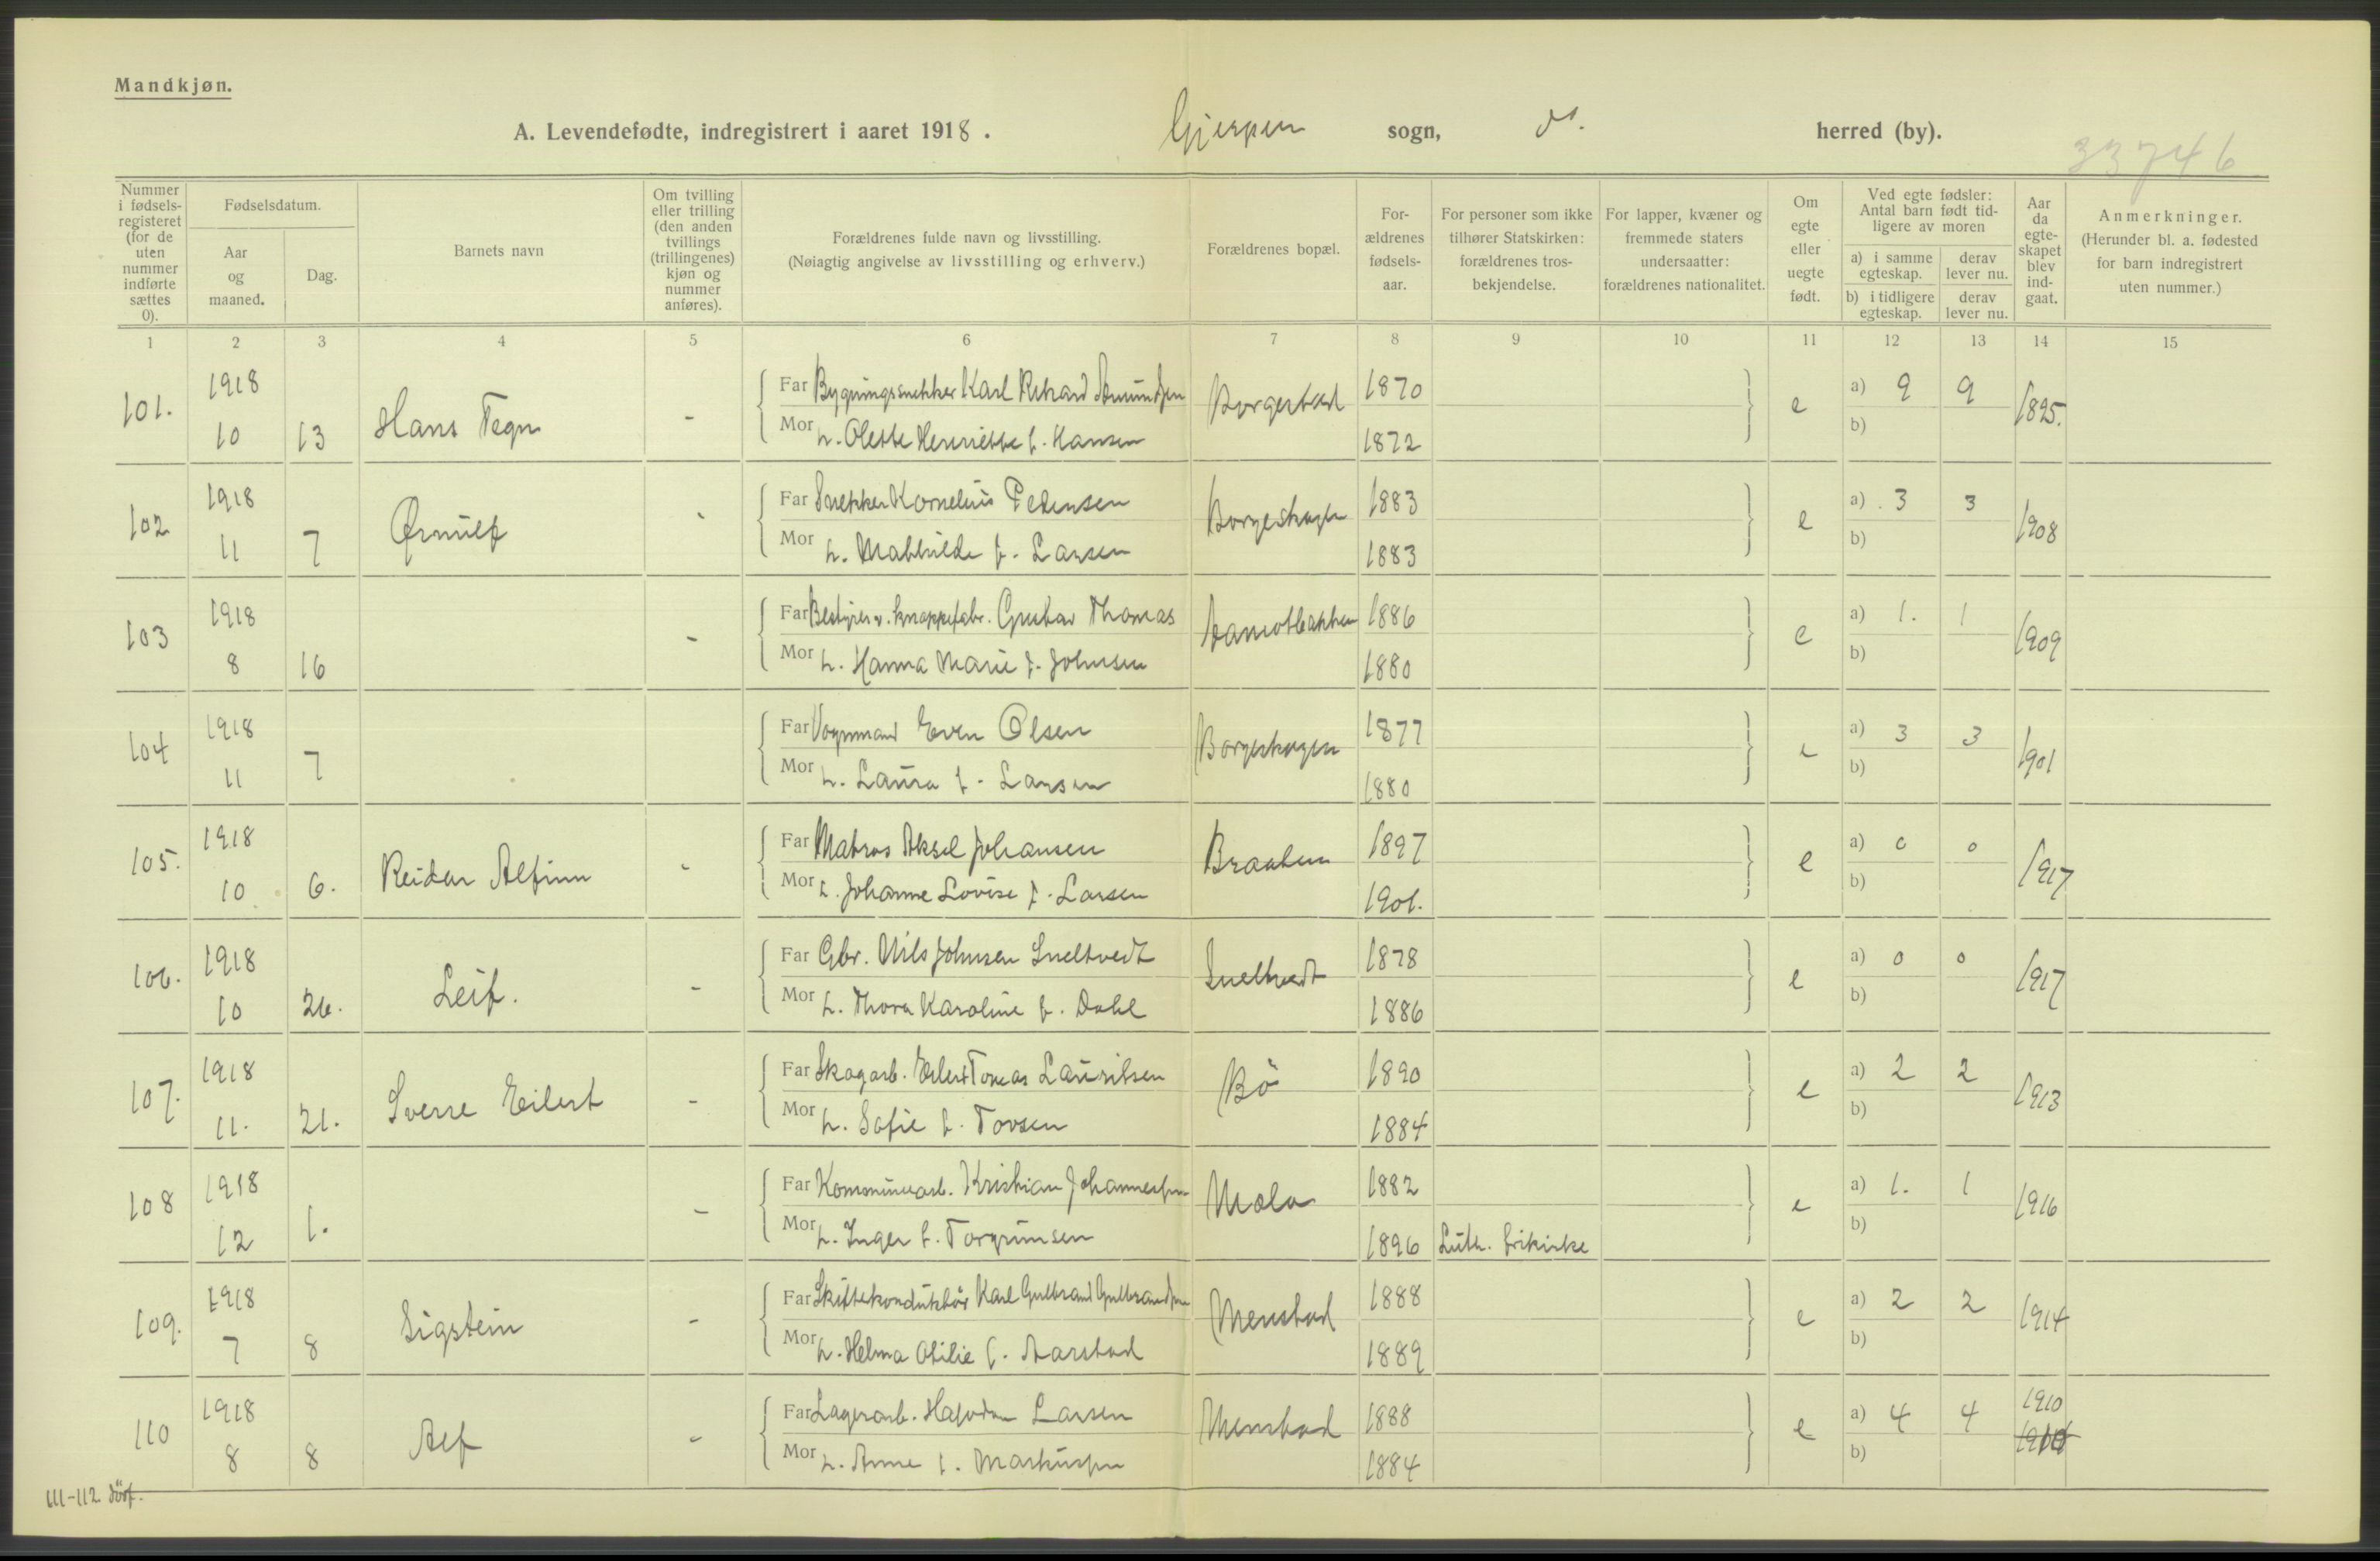 Mandkjøn.
A. Levendefødte, indregistrert i aaret 1918. Gjerpen sogn, ds. herred (by).
33746
Nummer i fødsels-registeret (for de uten nummer indførte sættes 0).
Fødselsdatum.
Aar og maaned.
Dag.
Barnets navn
Om tvilling eller trilling (den anden tvillings (trillingenes) kjøn og nummer anføres).
Forældrenes fulde navn og livsstilling.
(Nøiagtig angivelse av livsstilling og erhverv.)
Forældrenes bopæl.
For-ældrenes fødsels-aar.
For personer som ikke tilhører Statskirken: forældrenes tros-bekjendelse.
For lapper, kvæner og fremmede staters undersaatter: forældrenes nationalitet.
Om egte eller uegte født.
Ved egte fødsler: Antal barn født tid-ligere av moren
a) i samme egteskap.
derav lever nu.
b) i tidligere egteskap.
derav lever nu.
Aar da egte-skapet blev ind-gaat.
Anmerkninger.
(Herunder bl. a. fødested for barn indregistrert uten nummer.)
1 2 3 4 5 6 7 8 9 10 11 12 13 14 15
101. 1918 10 13 Hans Tegn - Far Bygningssnekker Karl Rikard Amundsen Borgestad 1870 e a) 9 9 1895.
Mor h. Olette Henriette f. Hansen 1872 b)
102 1918 11 7 Ørnulf - Far Snekker Kornelius Pedersen Borgeshagen 1883 e a) 3 3 1908
Mor h. Mathilde f. Larsen 1883 b)
103 1918 8 16 - Far Bestyrer v. knappefabr. Gustav Thomas 1886 e a) 1. 1 1909
Mor h. Hanna Marie f. Johnsen 1880 b)
104 1918 11 7 Far Vognmand Even Olsen Borgeshagen 1877 e a) 3 3 1901
Mor h. Laura f. Larsen 1880 b)
105. 1918 10 6. Reidar Alfinn - Far Matros Aksel Johansen Braaten 1897 e a) 0 0 1917
Mor h. Johanne Lovise f. Larsen 1901. b)
106. 1918 10 26. Leif. - Far Gbr. Nils Johnsen Sneltvedt Sneltvedt 1878 e a) 0 0 1917
Mor h. Thora Karoline f. Dahl 1886 b)
107. 1918 11. 21. Sverre Eilert - Far Skogarb. Eilert Tomas Lauritsen Bö 1890 e a) 2 2 1913
Mor h. Sofie f. Tovsen 1884 b)
108 1918 12 1. - Far Kommunearb. Kristian Johannessen Mæla 1882 e a) 1. 1 1916
Mor h. Inger f. Torgrimsen 1896 Luth. frikirke b)
109. 1918 7 8 Sigstein - Far Skiftekonduktör Karl Gulbrand Gulbrandsen Menstad 1888 e a) 2 2 1914
Mor h. Helma Otilie f. Aarstad 1889 b)
110 1918 8 8 Alf - Far Lagerarb. Halvdan Larsen Menstad 1888 e a) 4 4 1910
Mor h. Anne f. Markussen 1884 b)
111-112 döpf.